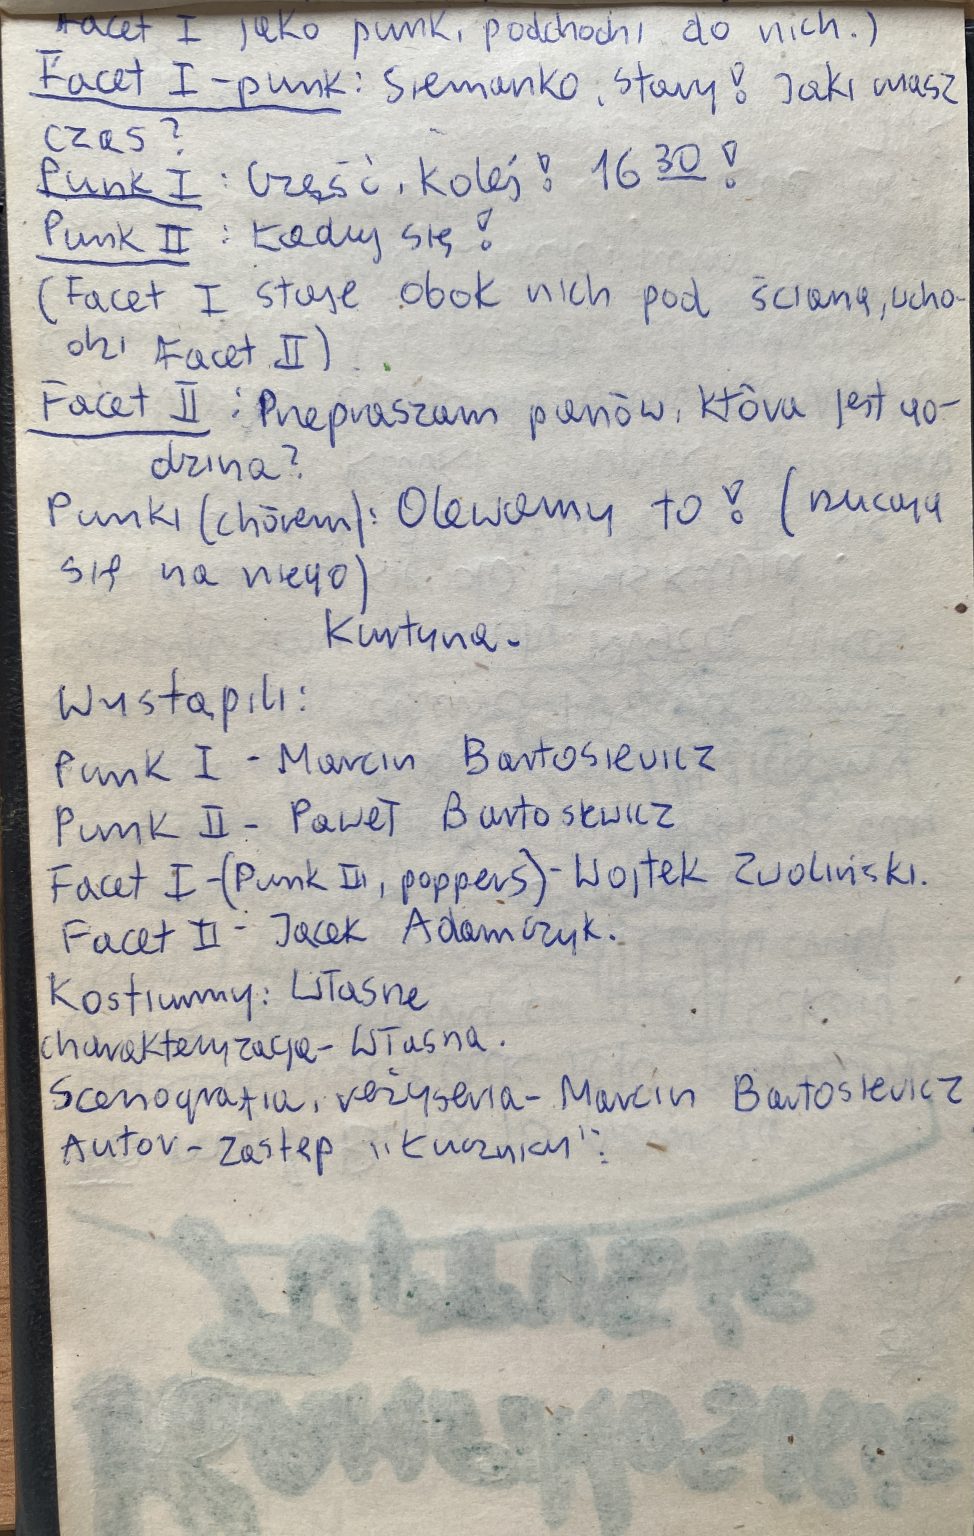 Facet I jako punk, podchodzi do nich.)
Facet I - punk: Siemanko, stary! Jaki masz
czas?
Punk I: Cześć, koleś! 16 30!
Punk II: Ładuj się!
(Facet I staje obok nich pod ścianą, wcho-
dzi Facet II)
Facet II: Przepraszam panów, która jest go-
dzina?
Punki (chórem): Olewamy to! (rzucają
się na niego)
Kurtyna.
Wystąpili:
Punk I - Marcin Bartosiewicz
Punk II - Paweł Bartosiewicz
Facet I - (Punk III, poppers) - Wojtek Zwoliński.
Facet II - Jacek Adamczyk.
Kostiumy: Własne
charakteryzacja - Własna.
Scenografia, reżyseria - Marcin Bartosiewicz
Autor - Zastęp "Łucznicy".